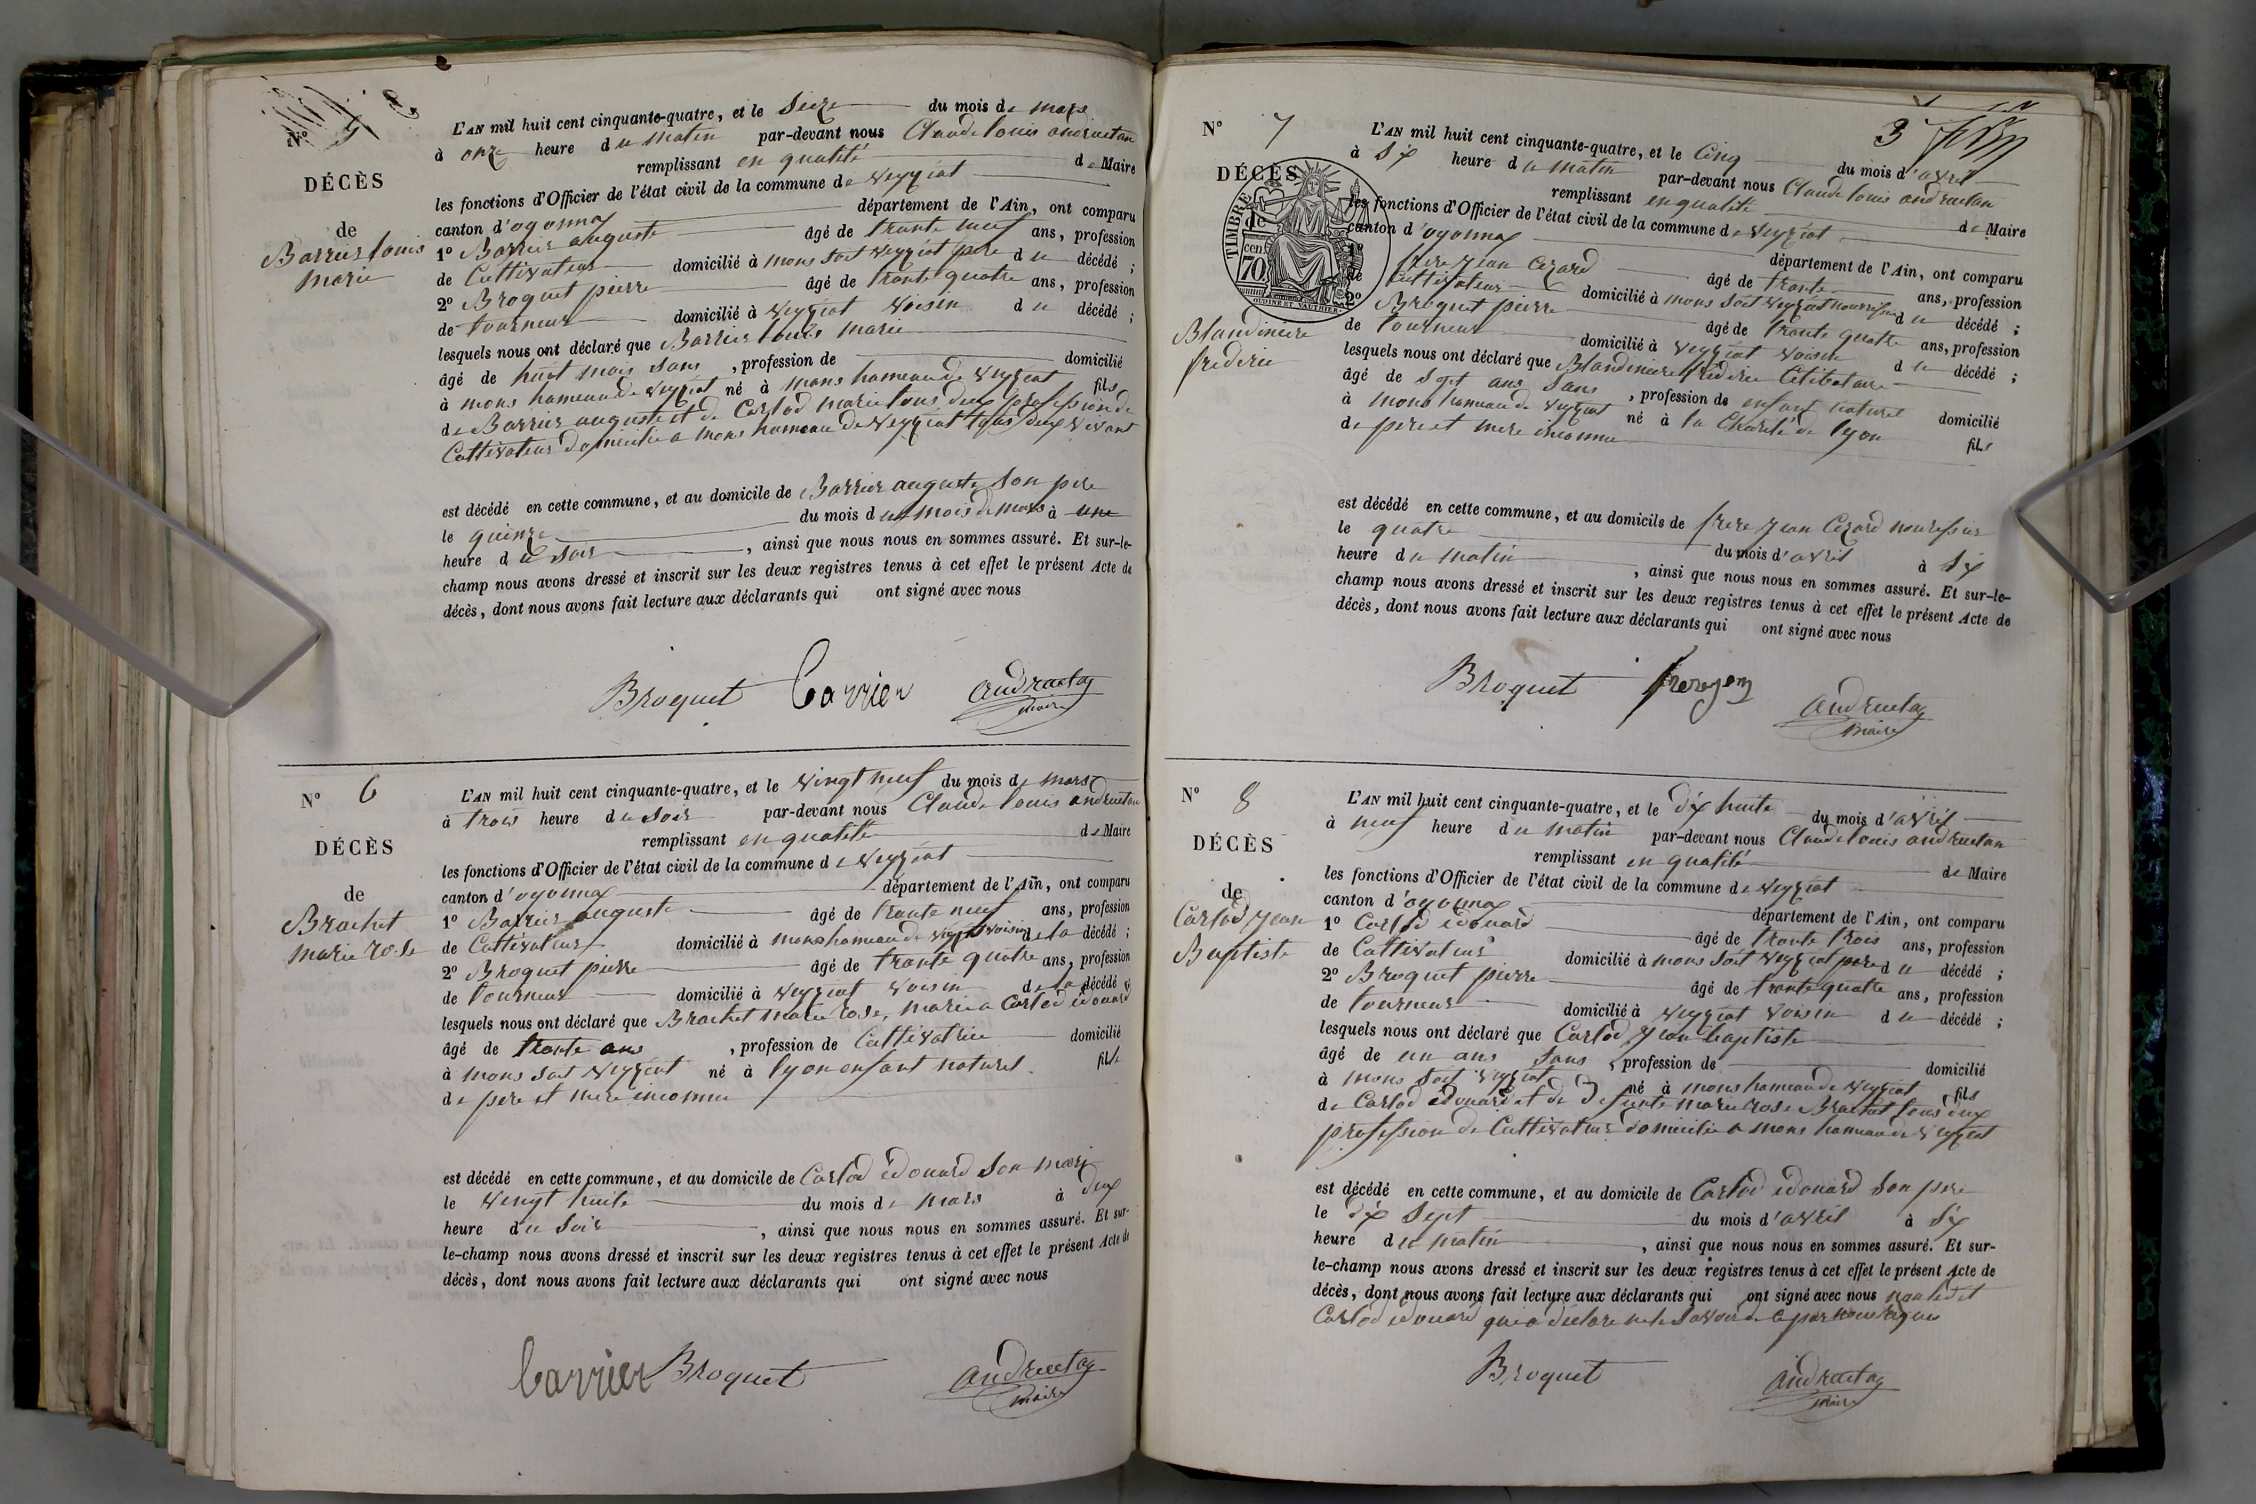 N° 5
DÉCÈS
de
Barrier louis
marie
L'AN mil huit cent cinquante-quatre, et le Seize du mois de mars
à onze heure du matin par-devant nous Claude louis andruetan
remplissant en qualité de Maire
les fonctions d'Officier de l'état civil de la commune de veyziat
canton d'oyonnax département de l'Ain, ont comparu
1° Barrier auguste âgé de trante neuf ans, profession
de Cultivateur domicilié à mons soit veyziat pere du décédé ;
2° Broquet pierre âgé de trante quatre ans, profession
de tourneur domicilié à veyziat voisin du décédé ;
lesquels nous ont déclaré que Barrier louis marie
âgé de huit mois sans , profession de domicilié
à mons hameau de veyziat né à mons hameau de veyziat fils
de Barrier auguste et de Carlod marie tous deux profession de
Cultivateur domicilié a mons hameau de veyziat tous deux vivant
est décédé en cette commune, et au domicile de Barrier auguste son pere
le quinze du mois du mois de mars à une
heure du soir , ainsi que nous nous en sommes assuré. Et sur-le-
champ nous avons dressé et inscrit sur les deux registres tenus à cet effet le présent Acte de
décès, dont nous avons fait lecture aux déclarants qui ont signé avec nous
Broquet Barrier andruetan
maire
N° 6
DÉCÈS
de
Brachet
marie rose
L'AN mil huit cent cinquante-quatre, et le vingt neuf du mois de mars
à trois heure du soir par-devant nous Claude louis andruetan
remplissant en qualité de Maire
les fonctions d'Officier de l'état civil de la commune de veyziat
canton d'oyonnax département de l'Ain, ont comparu
1° Barrier auguste âgé de trante neuf ans, profession
de Cultivateur domicilié à mons hameau de veyziat voisin de la décédé ;
2° Broquet pierre âgé de trante quatre ans, profession
de tourneur domicilié à veyziat voisin de la décédé ;
lesquels nous ont déclaré que Brachet marie rose, marie a Carlod édouard
âgé de trante ans , profession de Cultivatrice domicilié
à mons soit veyziat né à lyon enfant naturel fille
de pere et mere inconnu
est décédé en cette commune, et au domicile de Carlod édouard son mari
le vingt huite du mois de mars à deux
heure du soir , ainsi que nous nous en sommes assuré. Et sur-
le-champ nous avons dressé et inscrit sur les deux registres tenus à cet effet le présent Acte de
décès, dont nous avons fait lecture aux déclarants qui ont signé avec nous
Barrier Broquet andruetan
maire
3
N° 7
DÉCÈS
de
TIMBRE
cen
70
Blandiniere
frideric
L'AN mil huit cent cinquante-quatre, et le Cinq du mois d'avril
à six heure du matin par-devant nous Claude louis andruetan
remplissant en qualité de Maire
les fonctions d'Officier de l'état civil de la commune de veyziat
canton d'oyonnax département de l'Ain, ont comparu
1° frere jean Cezard âgé de trante ans, profession
de Cultivateur domicilié à mons soit veyziat du décédé ;
2° Broquet pierre âgé de trante quatre ans, profession
de tourneur domicilié à veyziat voisin du décédé ;
lesquels nous ont déclaré que Blandiniere frideric Celibataire
âgé de sept ans sans , profession de enfant naturel domicilié
à mons hameau de veyziat né à la Charité de lyon fils
de pere et mere inconnu
est décédé en cette commune, et au domicile de frere jean Cezard
le quatre du mois d'avril à six
heure du matin , ainsi que nous nous en sommes assuré. Et sur-le-
champ nous avons dressé et inscrit sur les deux registres tenus à cet effet le présent Acte de
décès, dont nous avons fait lecture aux déclarants qui ont signé avec nous
Broquet andruetan
maire
N° 8
DÉCÈS
de
Carlod jean
Baptiste
L'AN mil huit cent cinquante-quatre, et le dix huite du mois d'avril
à neuf heure du matin par-devant nous Claude louis andruetan
remplissant en qualité de Maire
les fonctions d'Officier de l'état civil de la commune de veyziat
canton d'oyonnax département de l'Ain, ont comparu
1° Carlod édouard âgé de trante trois ans, profession
de Cultivateur domicilié à mons soit veyziat pere du décédé ;
2° Broquet pierre âgé de trante quatre ans, profession
de tourneur domicilié à veyziat voisin du décédé ;
lesquels nous ont déclaré que Carlod jean baptiste
âgé de un ans sans , profession de domicilié
à mons soit veyziat né à mons hameau de veyziat , fils
de Carlod édouard et de défunte marie rose Brachet tous deux
profession de Cultivateur domicilié a mons hameau de veyziat
est décédé en cette commune, et au domicile de Carlod édouard son pere
le dix sept du mois d'avril à six
heure du matin , ainsi que nous nous en sommes assuré. Et sur-
le-champ nous avons dressé et inscrit sur les deux registres tenus à cet effet le présent Acte de
décès, dont nous avons fait lecture aux déclarants qui ont signé avec nous
Carlod édouard qui a déclaré ne le savoir de ce par nous requis
Broquet andruetan
maire